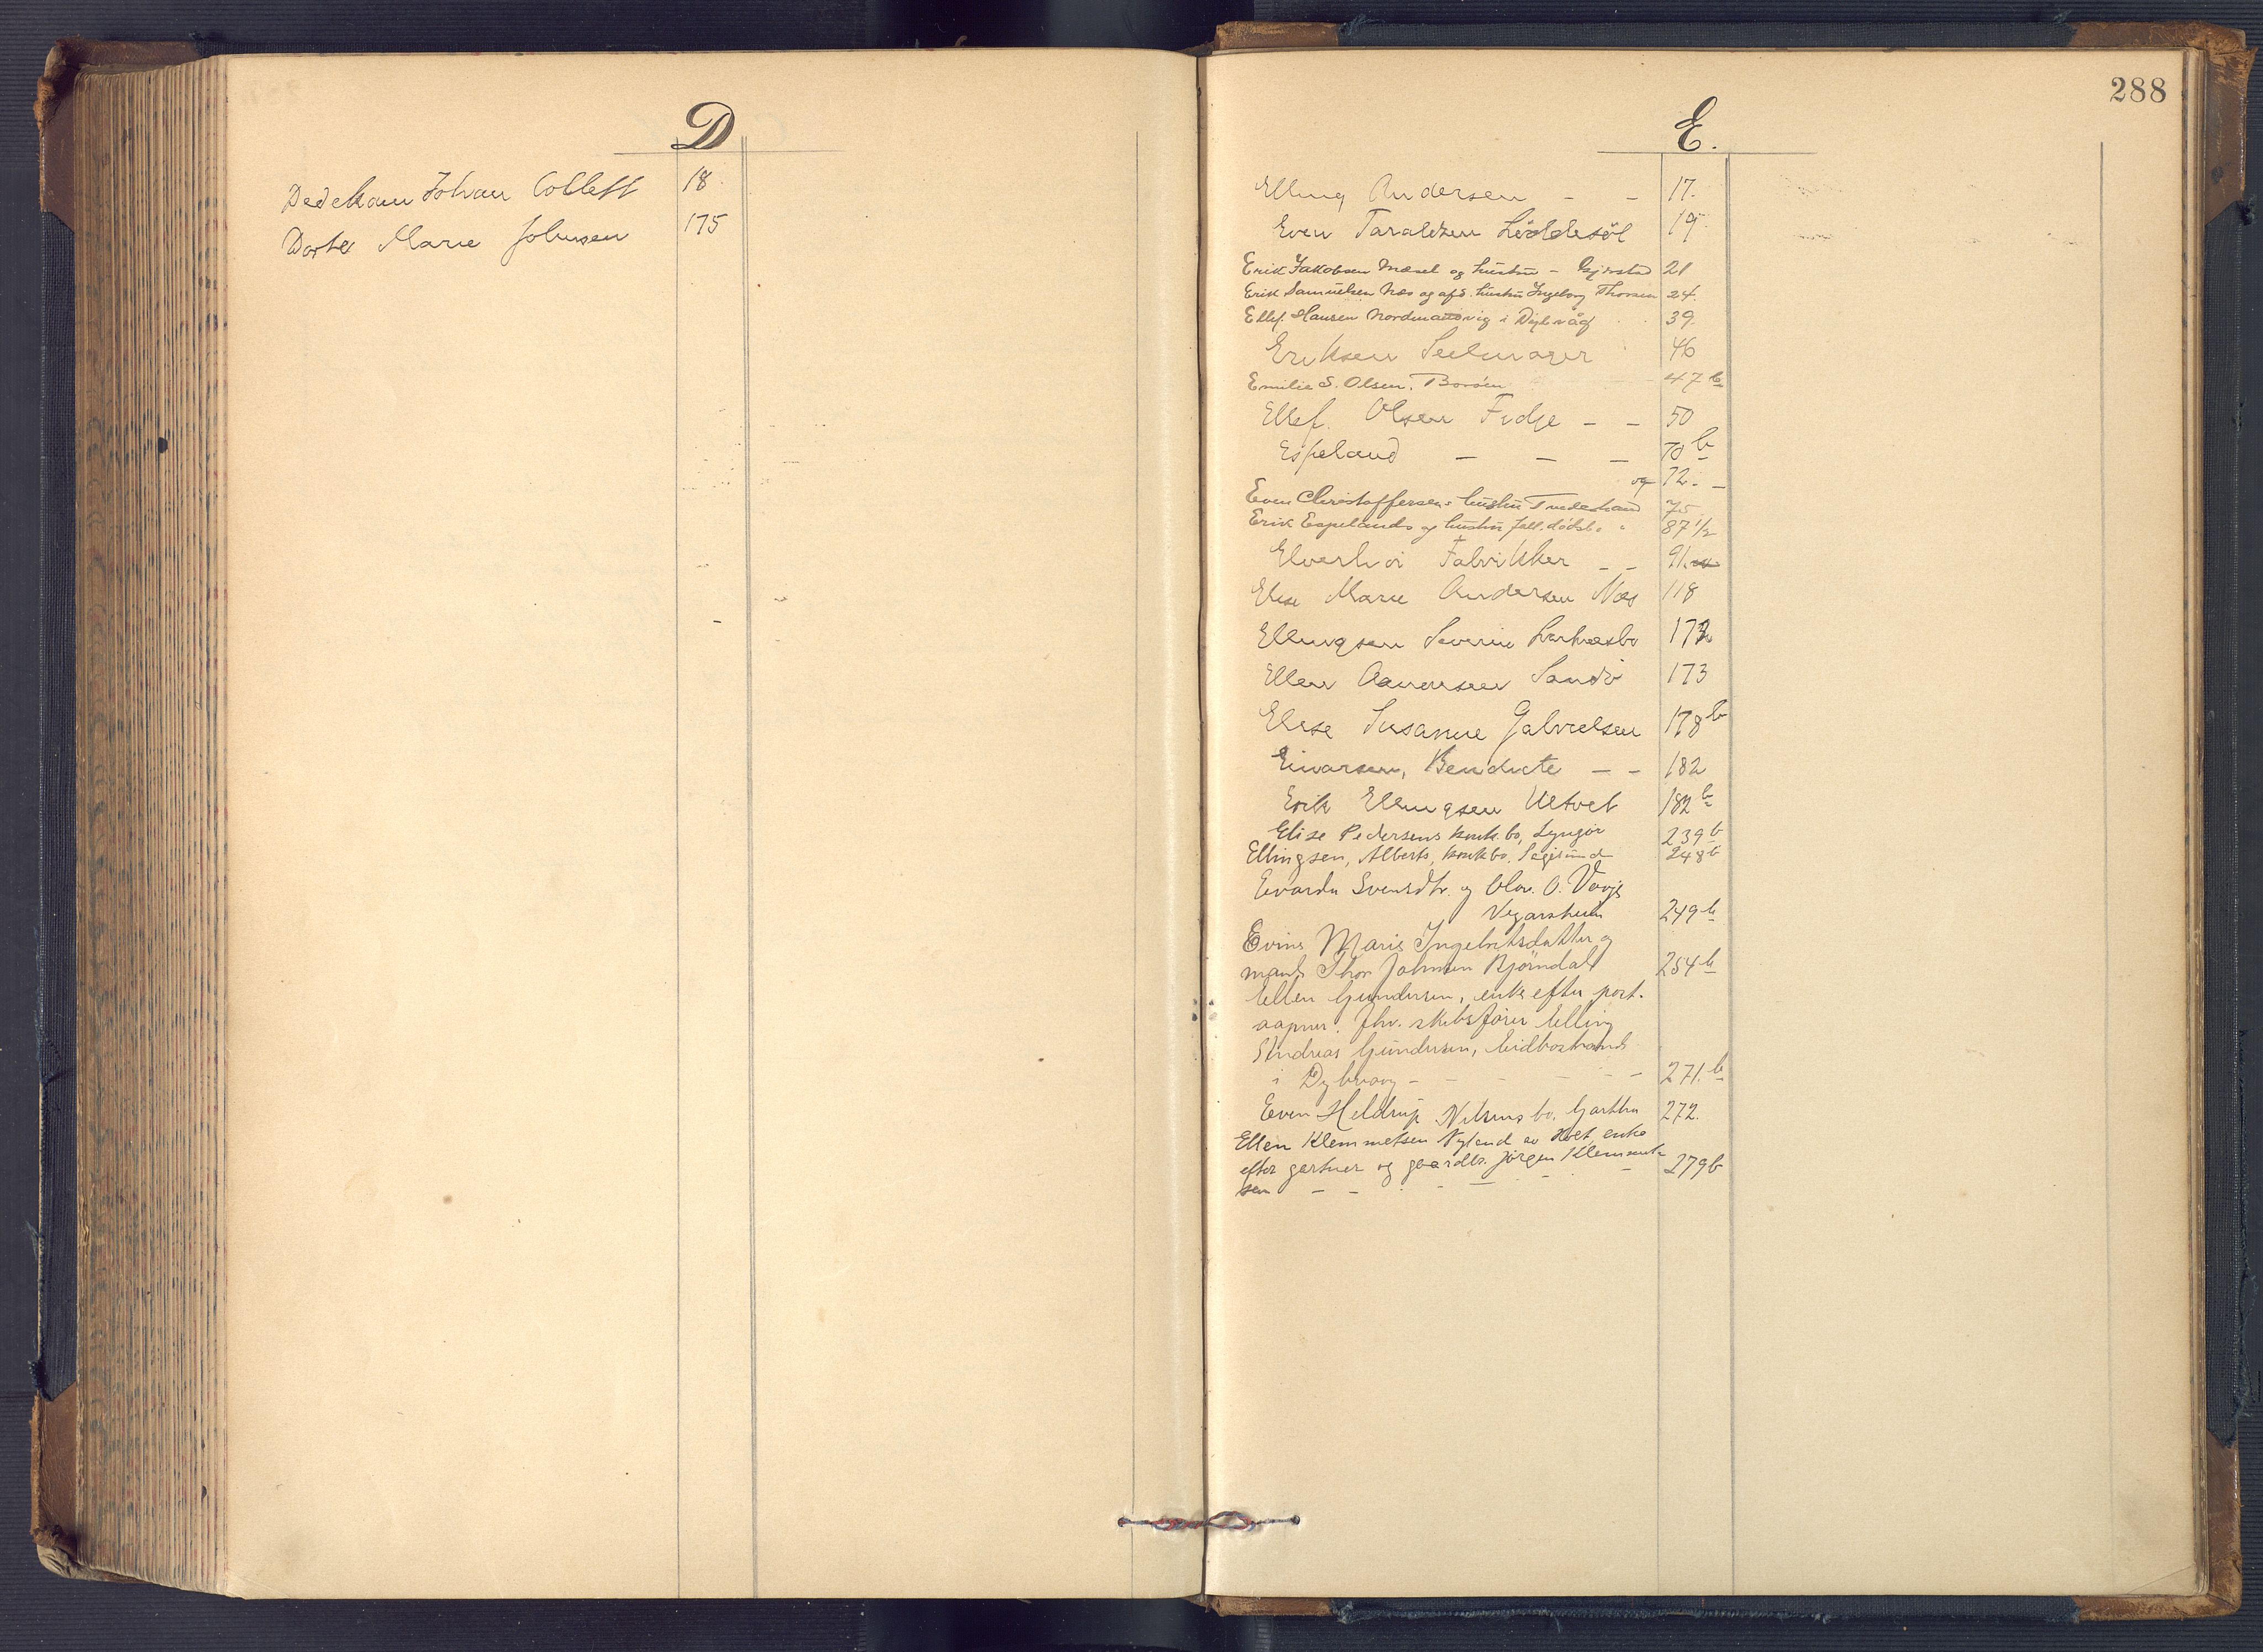 D
Dedekam Johan Collett 18.
Dorte Marie Johnsen 175
288
E.
Elling Andersen - - 17.
Even Taraldsen Løddesøl 19
Erik Jakobsen Mæsel og hustru - Gjerstad 21
Erik Samuelsen Næs og afd. hustru Ingeborg Thorsen 24.
Ellef Hansen Nordmandvig i Dybvåg 39.
Eriksen Seilmager 46
Emilie S. Olsen. Borøen 47 b
Ellef. Olsen Fidje - - 50
Espeland - - - 70 b
og 72. -
Even Christoffersens hustru Tvedestrand 75
Erik Espelands og hustru fell. dødsbo 87 1/2
Elverhøi Fabrikker - - 91.
Elise Marie Andersen Næs 118
Ellingsen Severin 172
Ellen Aanonsen Sandø 173
Elise Susanne Gabrielsen 178 b
Einarsen, Benedicte - - 182
Erik Ellingsen Ulltvet 182 b
Elise Pedersens konk. bo, Lyngør 239 b
Ellingsen, Alberts, konkbo. 248 b
Evarda Svensdtr. og Olav. O. Vovje
Vegarsheien 249 b
Evine Marie Ingebretsdatter og
mand Thor Johnsen Bjørndal 254 b
Ellen Gundersen, enke efter post-
aapner. fhv. skibsfører Elling
Andreas Gundersen, Eidbostrand
i Dybvaag - - - - - - 271. b
Even Heldrup Nilsens bo. Garthu 272.
Ellen Klemmetsen Nyland av Holt, enke
efter gartner og gaardbr. Jørgen Klemmet-
sen - - - - - - 279 b